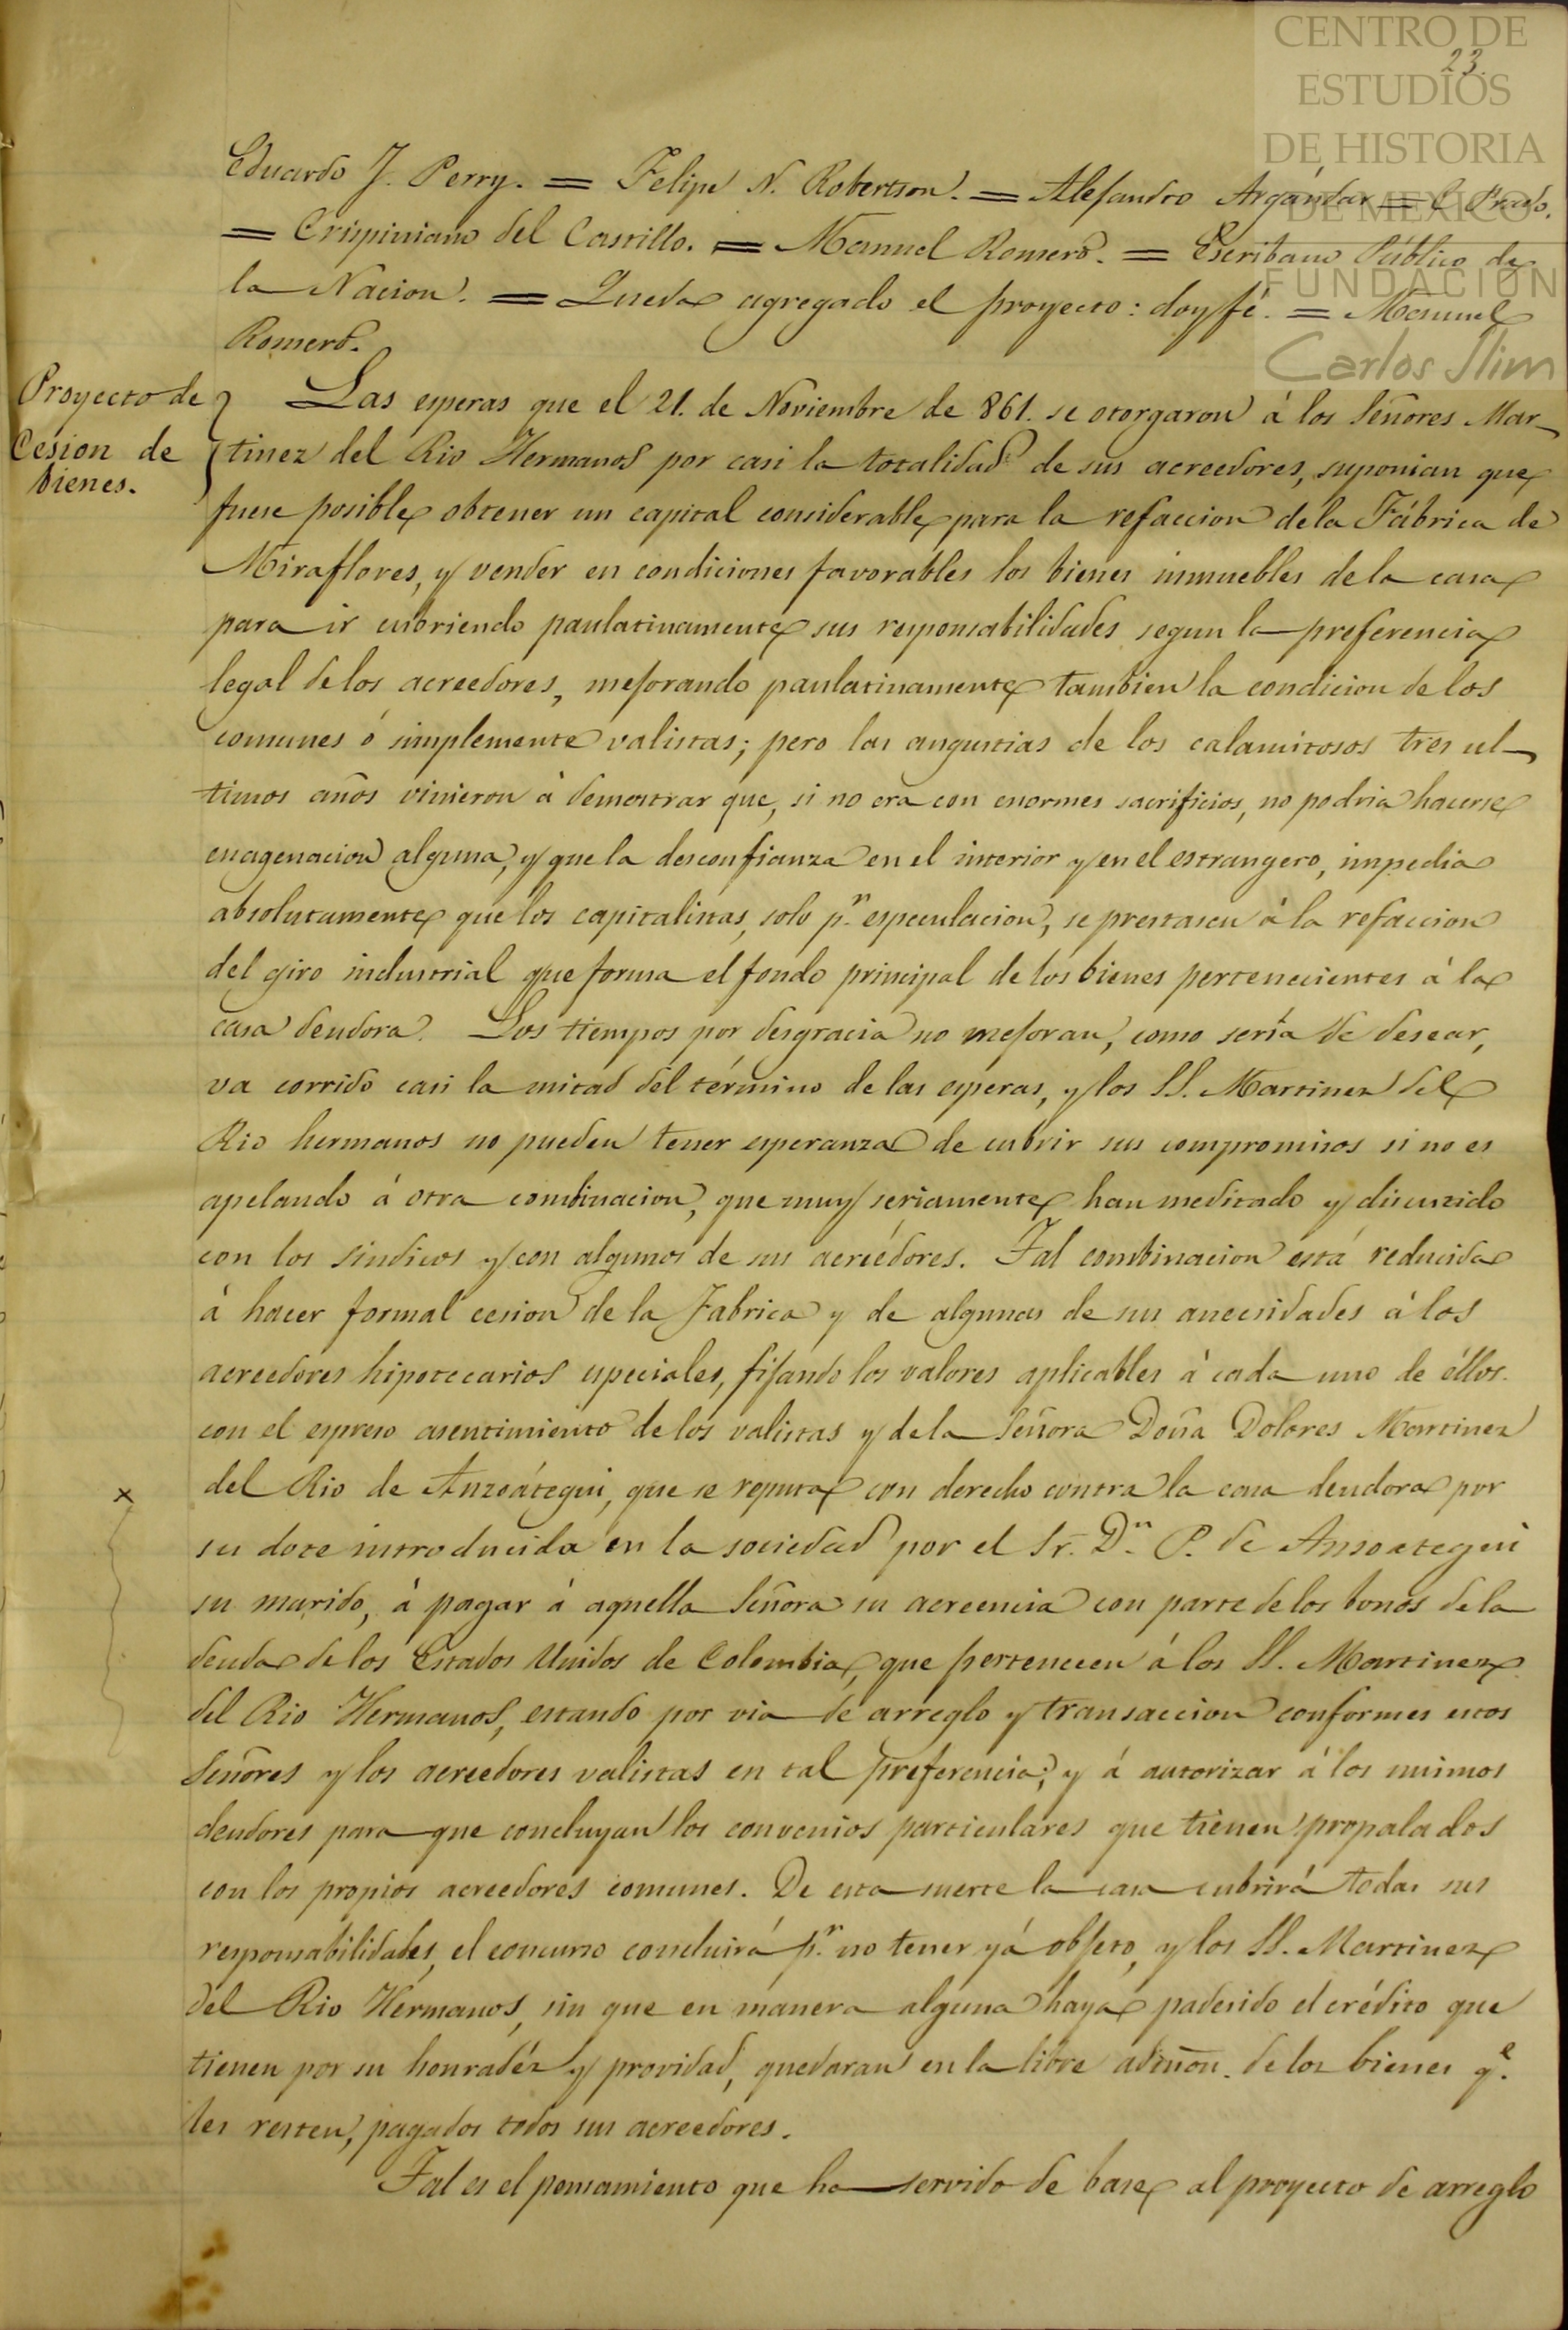 CENTRO DE
ESTUDIOS
DE HISTORIA
DE MEXICO
FUNDACIÓN
Carlos Slim
23.
Eduardo J. Perry. = Felipe N. Robertson. = Alejandro Argándar = C Prado.
= Crispiniano del Castillo. = Manuel Romero. = Escribano Público de
la Nacion. = Queda agregado el proyecto: doy fé. = Manuel
Romero.
Proyecto de
Cesion de
bienes.
Las esperas que el 21. de Noviembre de 861. se otorgaron á los Señores Mar-
tinez del Rio Hermanos por casi la totalidad de sus acreedores, suponian que
fuese posible obtener un capital considerable para la refaccion de la Fábrica de
Miraflores, y vender en condiciones favorables los bienes inmuebles de la casa
para ir cubriendo paulatinamente sus responsabilidades segun la preferencia
legal de los acreedores, mejorando paulatinamente tambien la condicion de los
comunes ó simplemente valistas; pero las angustias de los calamitosos tres ul-
timos años vinieron á demostrar que, si no era con enormes sacrificios, no podria hacerse
enagenacion alguna, y que la desconfianza en el interior y en el estrangero, impedia
absolutamente que los capitalistas, solo p.r especulacion, se prestasen á la refaccion
del giro industrial que forma el fondo principal de los bienes pertenecientes á la
casa deudora. Los tiempos por desgracia no mejoran, como sería de desear,
va corrido casi la mitad del término de las esperas, y los SS. Martinez del
Rio hermanos no pueden tener esperanza de cubrir sus compromisos si no es
apelando á otra combinacion, que muy seriamente han meditado y discutido
con los síndicos y con algunos de sus acreédores. Tal combinacion está reducida
á hacer formal cesion de la Fabrica y de algunas de sus anecsidades á los
acreedores hipotecarios especiales, fijando los valores aplicables á cada uno de éllos.
con el espreso asentimiento de los valistas y de la Señora Doña Dolores Martinez
del Rio de Anzoátegui, que se reputa con derecho contra la casa deudora por
su dote introducida en la sociedad por el Sr. D.n P. de Ansoategui
su marido, á pagar á aquella Señora su acreencia con parte de los bonos de la
deuda de los Estados Unidos de Colombia, que pertenecen á los SS. Martinez
del Rio Hermanos, estando por via de arreglo y transaccion conformes estos
Señores y los acreedores valistas en tal preferencia; y á autorizar á los mismos
deudores para que concluyan los convenios particulares que tienen propalados
con los propios acreedores comunes. De esta suerte la casa cubrirá todas sus
responsabilidades, el concurso concluirá p.r no tener yá objeto, y los SS. Martinez
del Rio Hermanos, sin que en manera alguna haya padesido el crédito que
tienen por su honradéz y providad, quedaran en la libre admōn. de los bienes q.e
les resten, pagados todos sus acreedores.
Tal es el pensamiento que ha servido de base al proyecto de arreglo